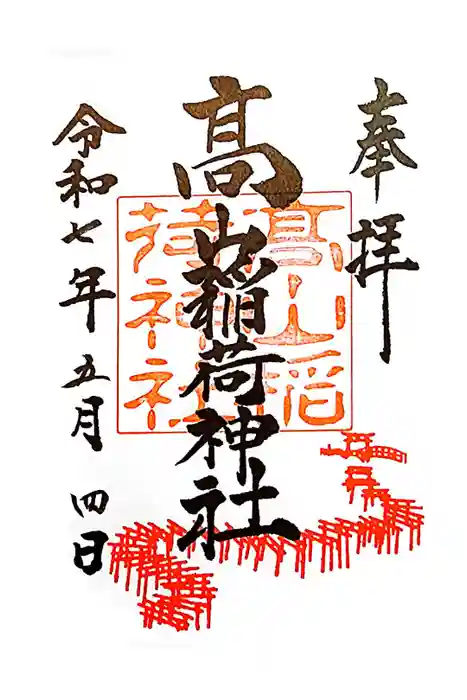 奉拝
髙山稲荷神社
髙山稲
荷神神社
令和七年五月四日